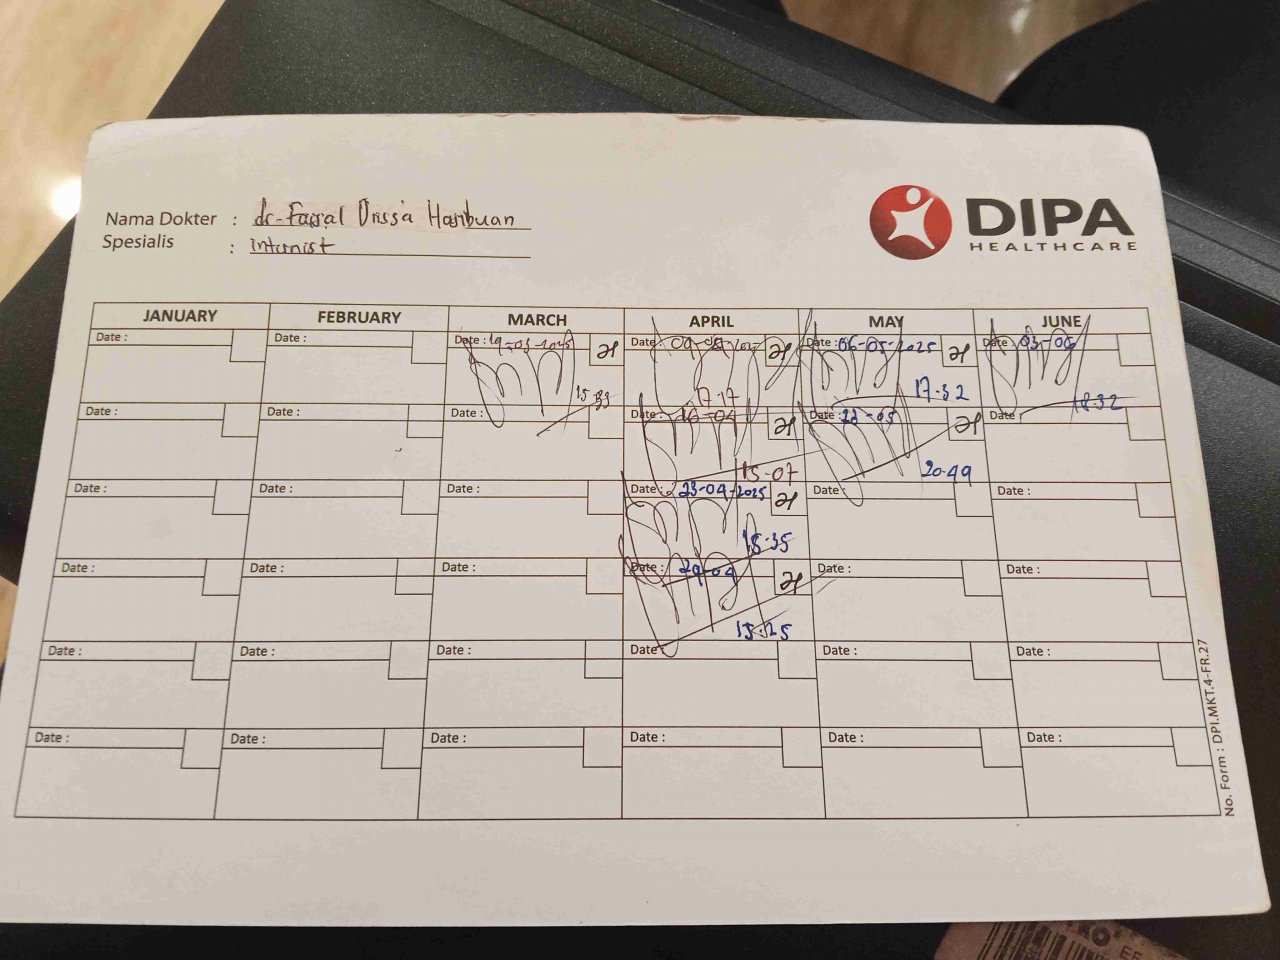 Nama Dokter : dr. Faisal Drissa Hasibuan
Spesialis : Internist
DIPA
HEALTHCARE
JANUARY FEBRUARY MARCH APRIL MAY JUNE
Date : Date : Date : 19-03-2025 Date : 09-04-202 Date : 06-05-2025 Date : 03-06
15-33 17-17 17-32 18-32
Date : Date : Date : Date : 16-04 Date : 23-05 Date :
15-07 20-49
Date : Date : Date : Date : 23-04-2025 Date : Date :
18-35
Date : Date : Date : Date : 29-04 Date : Date :
15-25
Date : Date : Date : Date : Date : Date :
Date : Date : Date : Date : Date : Date :
No. Form : DPI.MKT.4-FR.27